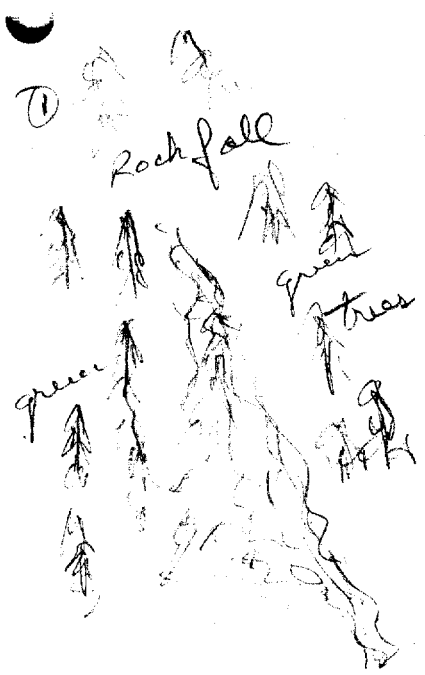 1
Rock fall
green
trees
green